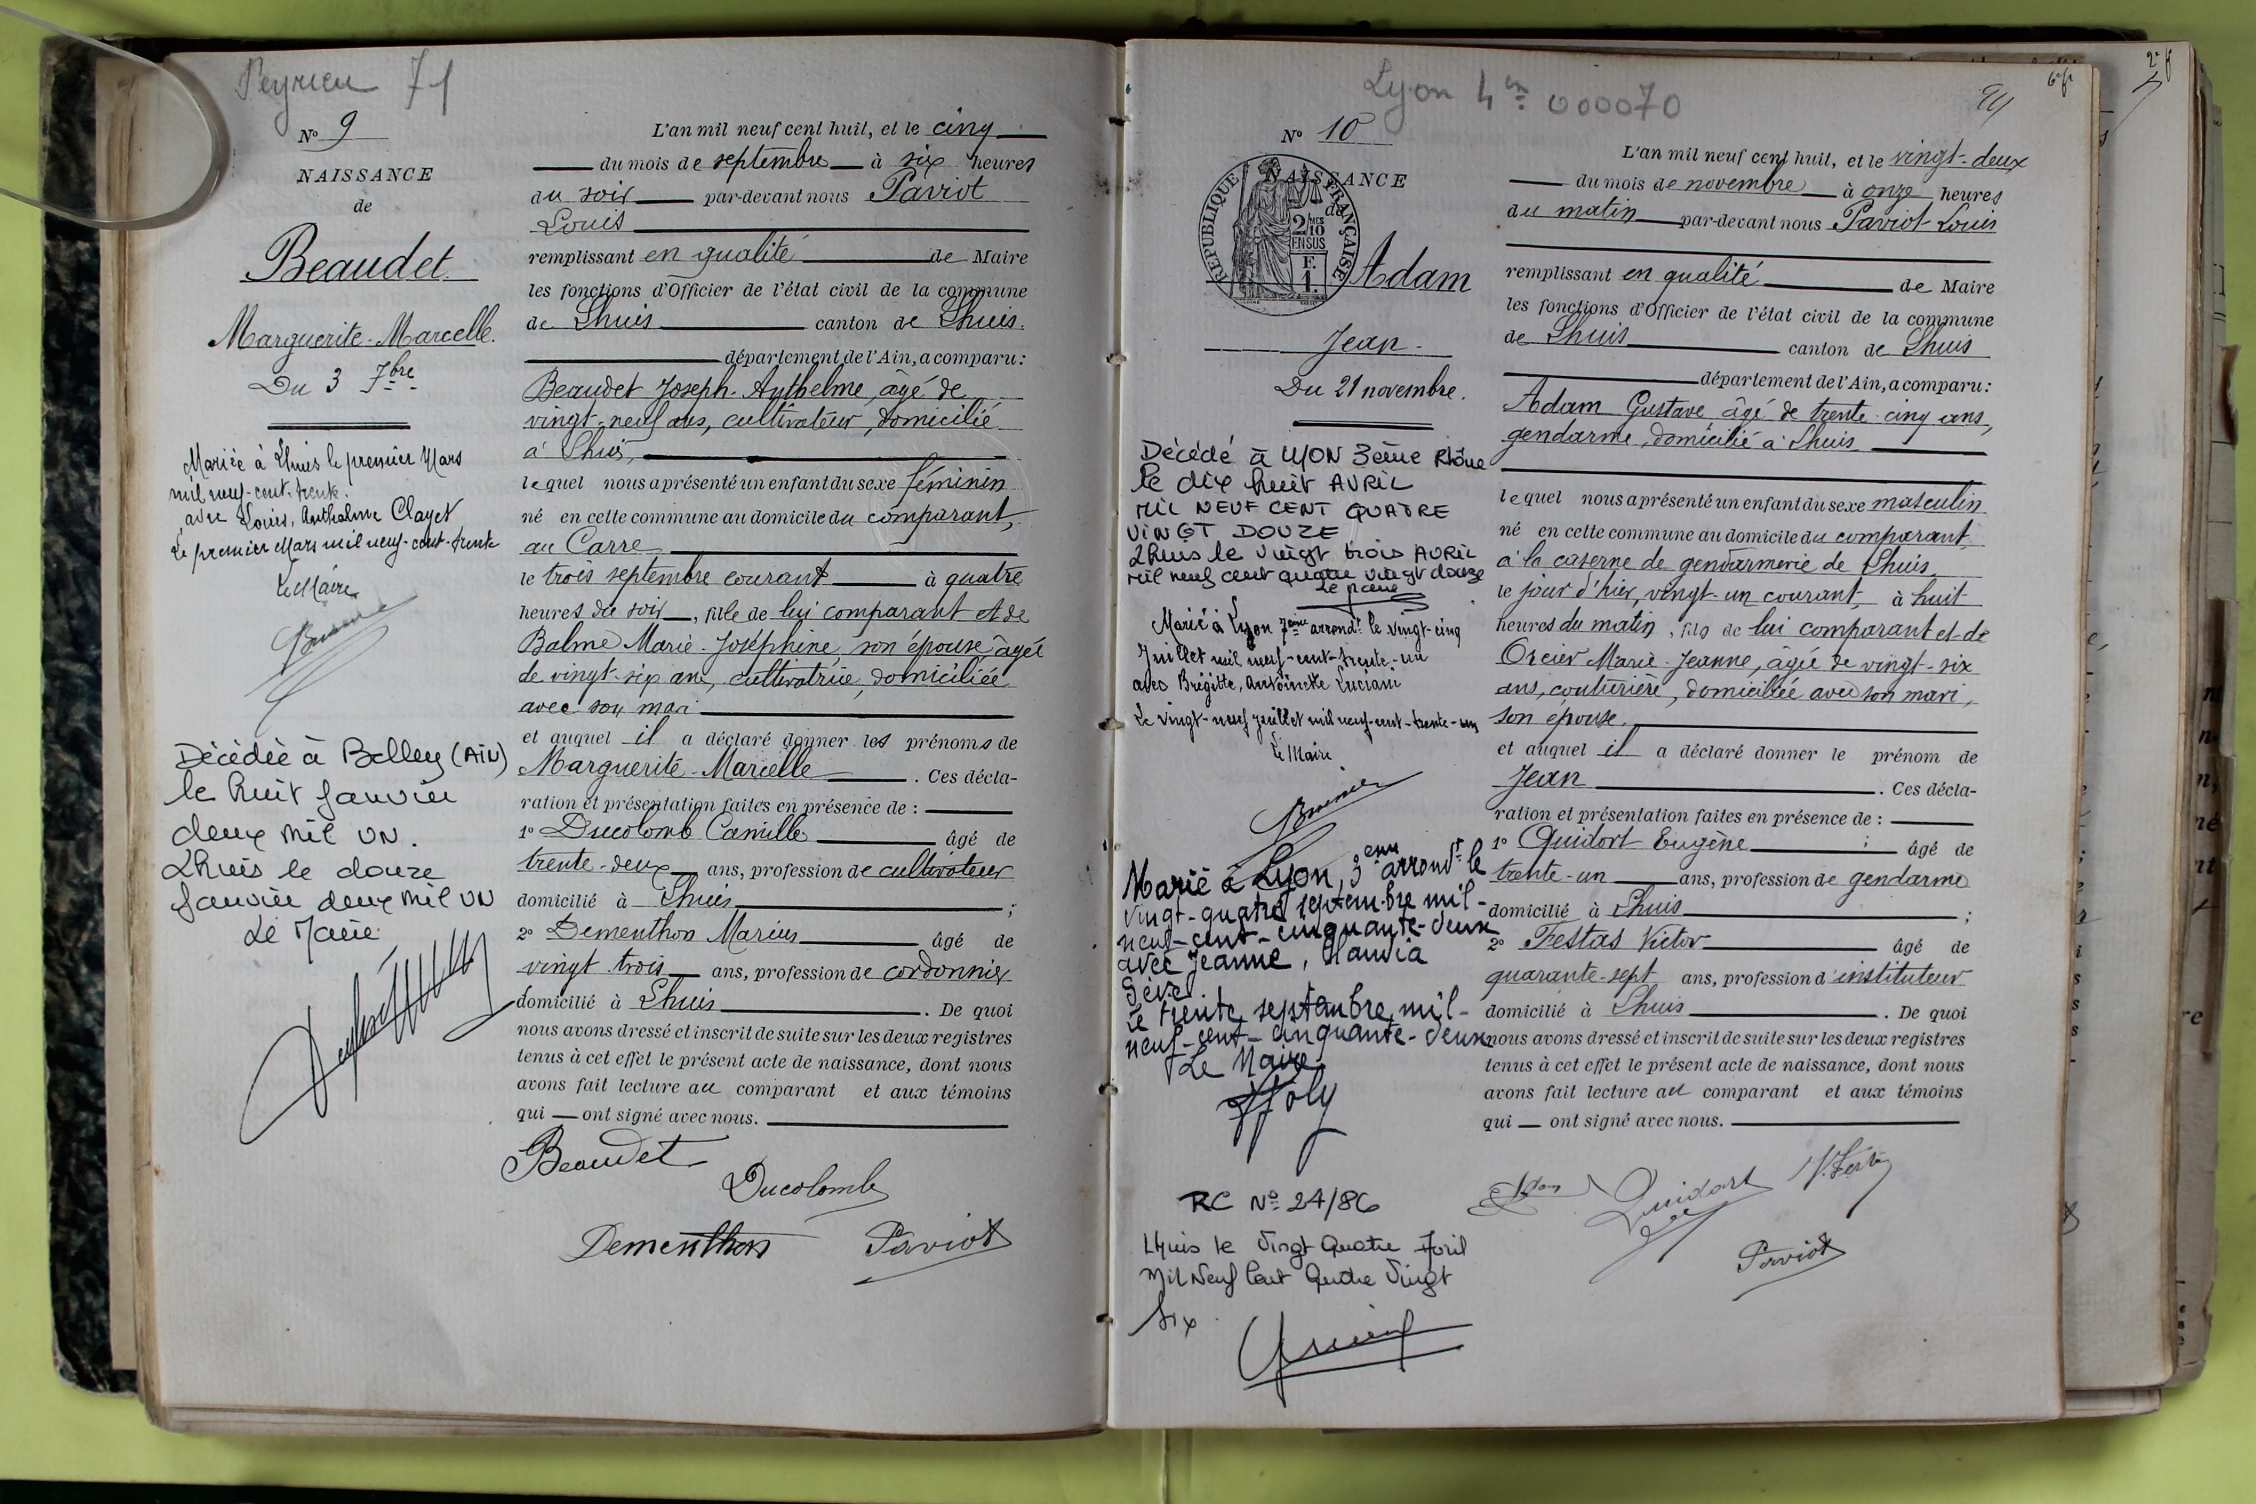 Peyrieu 71
N° 9
NAISSANCE
de
Beaudet
Marguerite-Marcelle.
Du 3 7bre
Mariée à Lhuis le premier Mars
mil neuf-cent-trente.
avec Louis, Anthelme Clayet
Le premier Mars mil neuf-cent-trente
Le Maire
Décédée à Belley (AIN)
le huit janvier
deux mil UN.
Lhuis le douze
janvier deux mil UN
Le Maire
L'an mil neuf cent huit, et le cinq
du mois de septembre à six heures
du soir par-devant nous Paviot
Louis
remplissant en qualité de Maire
les fonctions d'Officier de l'état civil de la commune
de Lhuis canton de Lhuis.
département de l'Ain, a comparu:
Beaudet Joseph-Anthelme, âgé de
vingt-neuf ans, cultivateur, domicilié
à Lhuis,
lequel nous a présenté un enfant du sexe féminin
né en cette commune au domicile du comparant,
au Carre
le trois septembre courant à quatre
heures du soir, fille de lui comparant et de
Balme Marie-Joséphine son épouse âgée
de vingt-six ans, cultivatrice, domiciliée
avec son mari
et auquel il a déclaré donner les prénoms de
Marguerite-Marcelle. Ces décla-
ration et présentation faites en présence de :
1° Ducolomb Camille âgé de
trente-deux ans, profession de cultivateur
domicilié à Lhuis ;
2° Dementhon Marius âgé de
vingt-trois ans, profession de cordonnier
domicilié à Lhuis. De quoi
nous avons dressé et inscrit de suite sur les deux registres
tenus à cet effet le présent acte de naissance, dont nous
avons fait lecture au comparant et aux témoins
qui ont signé avec nous.
Beaudet
Ducolomb
Dementhon Paviot
Lyon 4 000070
N° 10
NAISSANCE
de
RÉPUBLIQUE FRANÇAISE
2/10
EN SUS
F.
1.
Adam
Jean.
Du 21 novembre.
Décédé à LYON 3ème Rhône
le dix huit AVRIL
MIL NEUF CENT QUATRE
VINGT DOUZE
Lhuis le vingt trois AVRIL
mil neuf cent quatre vingt douze
Le Maire
Marié à Lyon 7ème arrondt le vingt-cinq
Juillet mil neuf-cent-trente-un
avec Brigitte, Antoinette Luciani
Le vingt-neuf juillet mil neuf-cent-trente-un
Le Maire
Marié à Lyon, 3eme arrondt le
vingt-quatre septembre mil-
neuf-cent-cinquante-deux
avec Jeanne, Claudia
Le trente septembre mil-
neuf-cent-cinquante-deux
Le Maire
RC N° 24/86
Lhuis le Vingt Quatre Avril
Mil Neuf Cent Quatre Vingt
Six
L'an mil neuf cent huit, et le vingt-deux
du mois de novembre à onze heures
du matin par-devant nous Paviot Louis
remplissant en qualité de Maire
les fonctions d'Officier de l'état civil de la commune
de Lhuis canton de Lhuis
département de l'Ain, a comparu:
Adam Gustave âgé de trente-cinq ans,
gendarme, domicilié à Lhuis
lequel nous a présenté un enfant du sexe masculin
né en cette commune au domicile du comparant
à la caserne de gendarmerie de Lhuis
le jour d'hier, vingt-un courant, à huit
heures du matin, fils de lui comparant et de
Orcier Marie-Jeanne, âgée de vingt-six
ans, couturière, domiciliée avec son mari,
son épouse.
et auquel il a déclaré donner le prénom de
Jean. Ces décla-
ration et présentation faites en présence de :
1° Quidort Eugène âgé de
trente-un ans, profession de gendarme
domicilié à Lhuis ;
2° Festas Victor âgé de
quarante-sept ans, profession d'instituteur
domicilié à Lhuis. De quoi
nous avons dressé et inscrit de suite sur les deux registres
tenus à cet effet le présent acte de naissance, dont nous
avons fait lecture au comparant et aux témoins
qui ont signé avec nous.
Adam Quidort V. Festas
Paviot